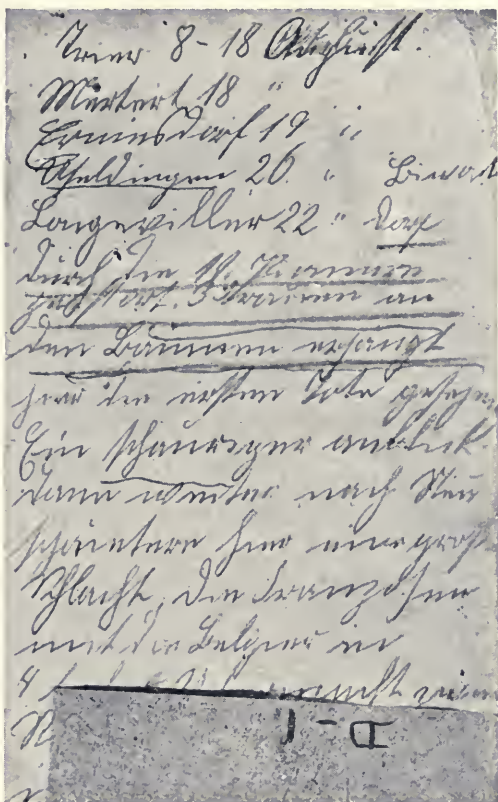 Trier 8-18 August.
Mertert 18 "
Ermensdorf 19 "
Useldingen 20 " Biwak
Langeviller 22 " Dorf
durch die 11. Pioniere
zerstört. 3 Frauen an
den Bäumen erhängt
hier die ersten Tote gesehen
Ein schauriger anblick
dann weiter nach Neu
hier eine groß
Schlacht, die Franzosen
mit die Belgier in